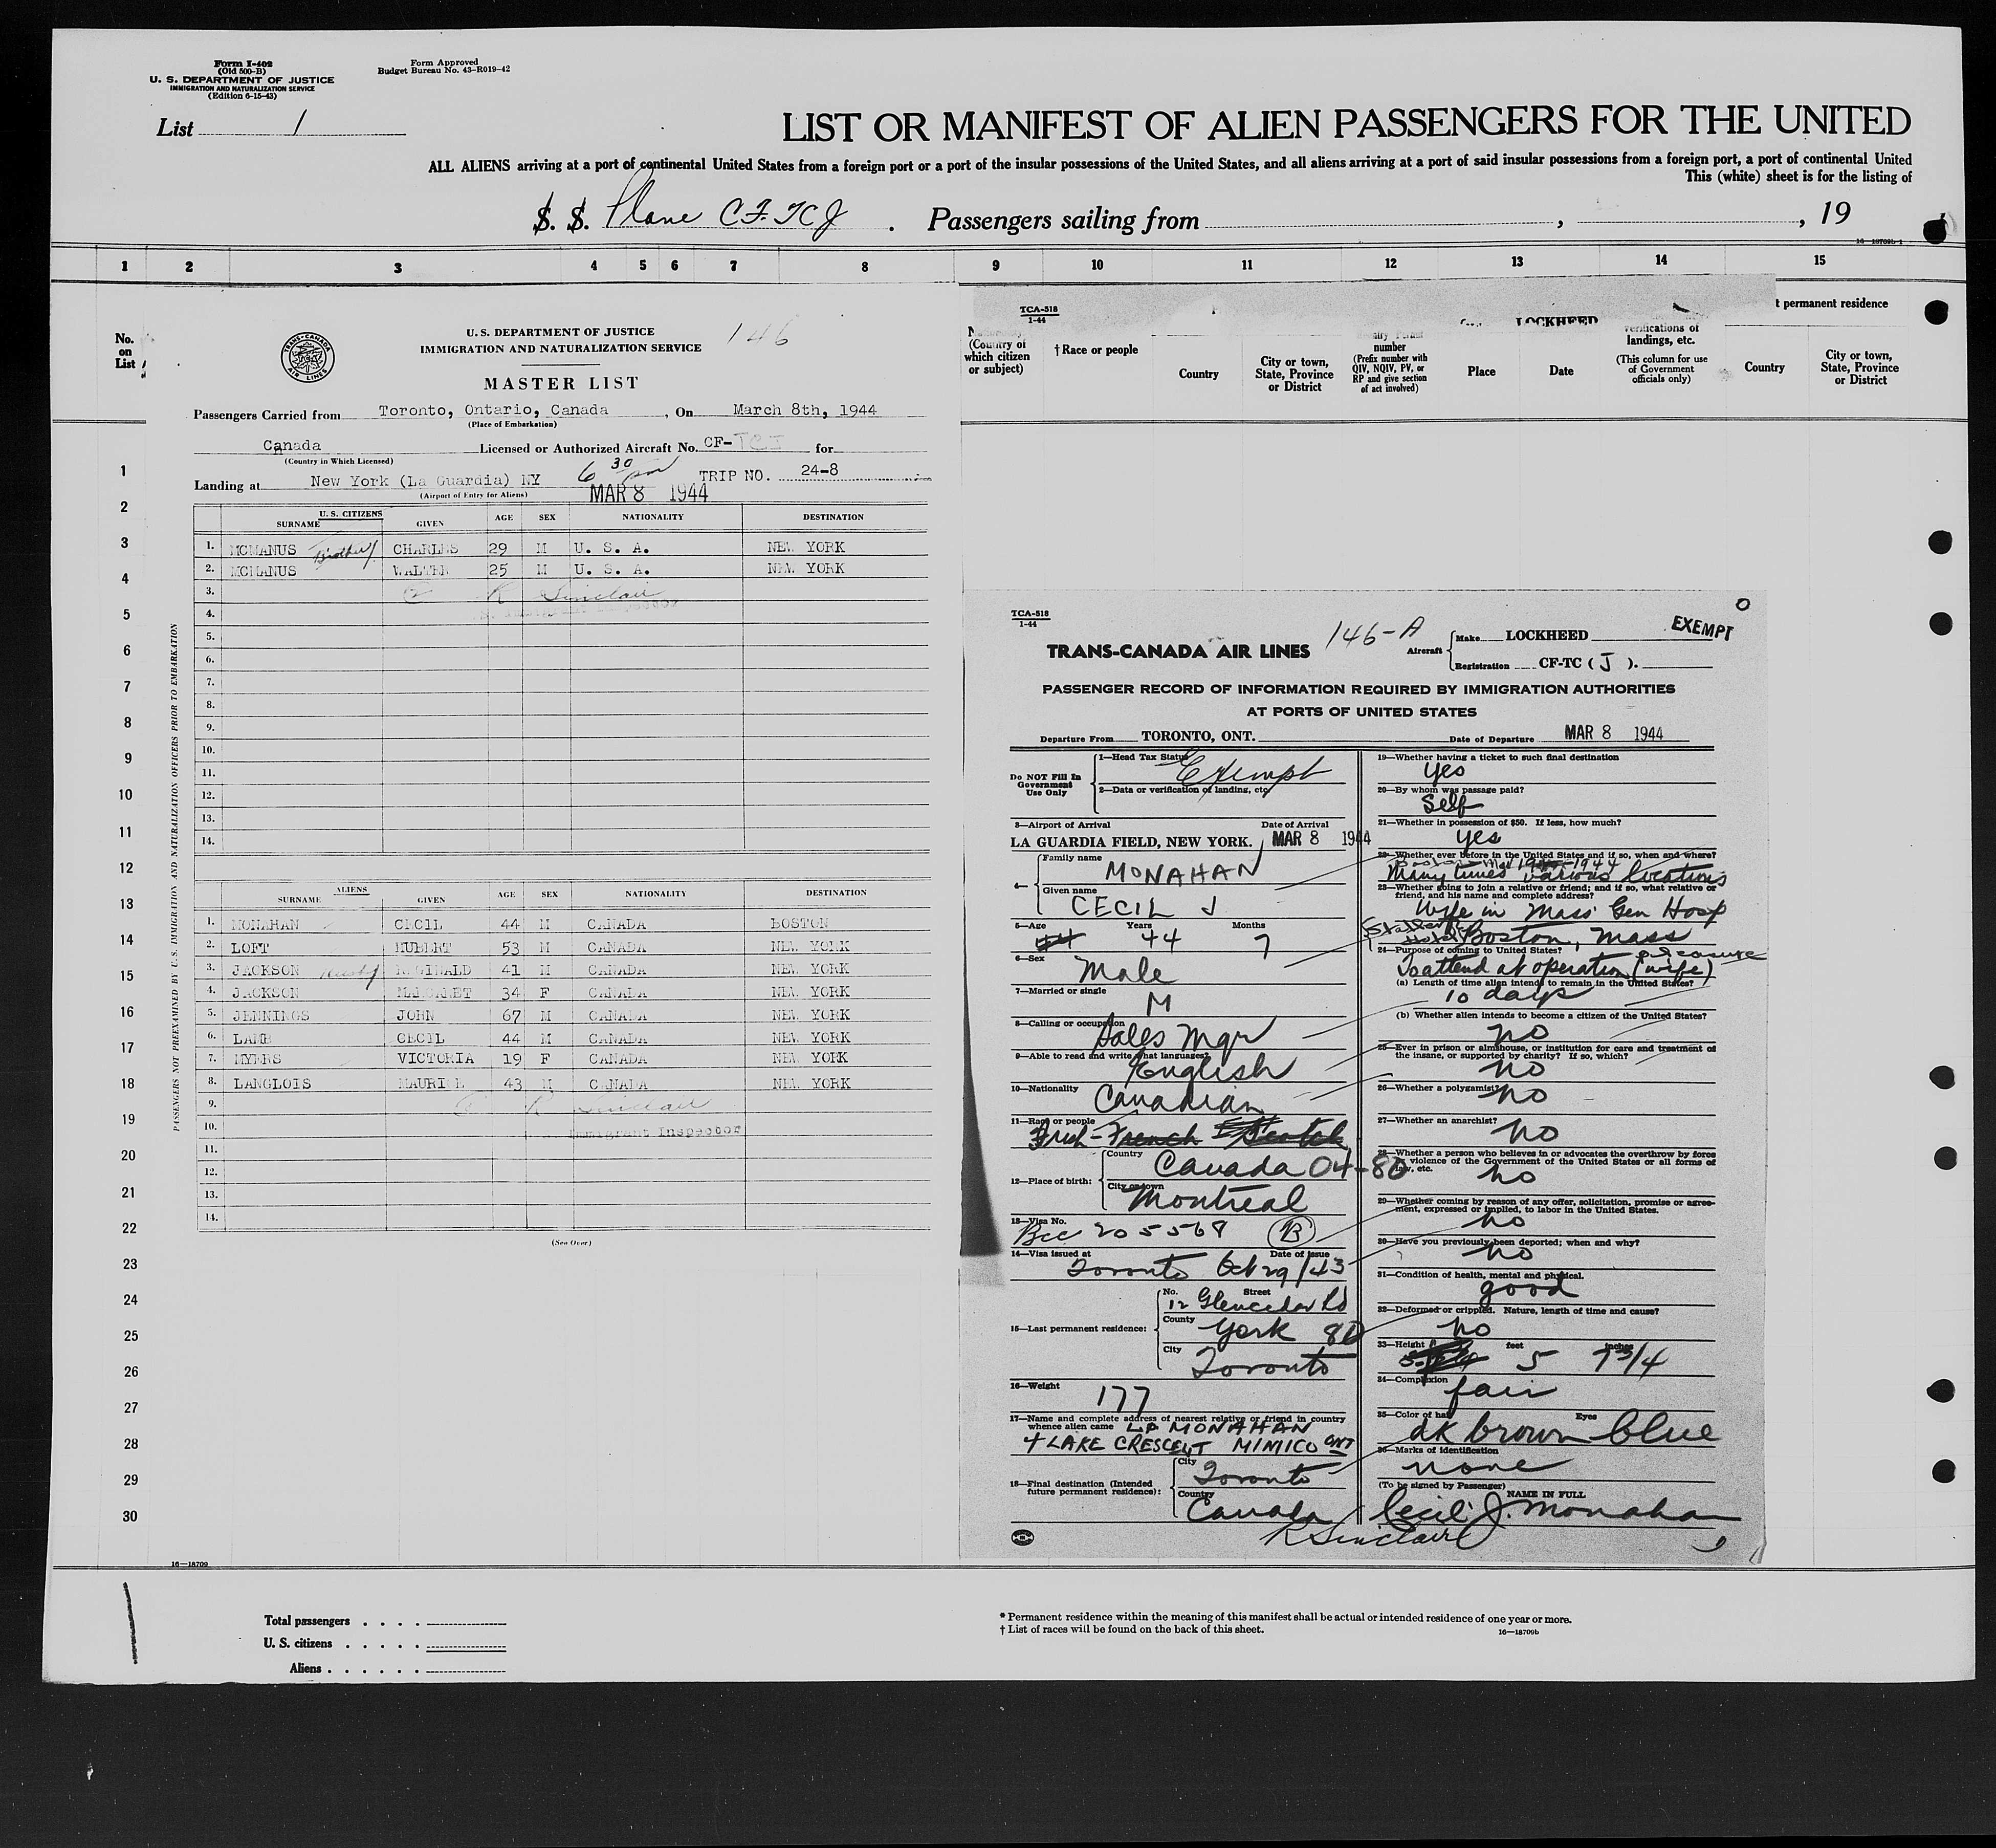 Form I-402
(Old 500-B)
U. S. DEPARTMENT OF JUSTICE
IMMIGRATION AND NATURALIZATION SERVICE
(Edition 6-15-43)
Form Approved
Budget Bureau No. 43-R019-42
List 1
LIST OR MANIFEST OF ALIEN PASSENGERS FOR THE UNITED
ALL ALIENS arriving at a port of continental United States from a foreign port or a port of the insular possessions of the United States, and all aliens arriving at a port of said insular possessions from a foreign port, a port of continental United
This (white) sheet is for the listing of
S. S. Plane CF.TCJ . Passengers sailing from , , 19
16-18709b-1
1 2 3 4 5 6 7 8 9 10 11 12 13 14 15
No.
on
List
TRANS-CANADA AIR LINES
U. S. DEPARTMENT OF JUSTICE
IMMIGRATION AND NATURALIZATION SERVICE
146
MASTER LIST
Passengers Carried from Toronto, Ontario, Canada , On March 8th, 1944
(Place of Embarkation)
Canada Licensed or Authorized Aircraft No. CF-TCJ for
(Country in Which Licensed)
6 30 pm TRIP NO. 24-8
Landing at New York (La Guardia) NY
(Airport of Entry for Aliens)
MAR 8 1944
U. S. CITIZENS
SURNAME GIVEN AGE SEX NATIONALITY DESTINATION
1. MCMANUS Brother CHARLES 29 M U. S. A. NEW YORK
2. MCMANUS WALTER 25 M U. S. A. NEW YORK
3. R Sinclair
4.
5.
6.
7.
8.
9.
10.
11.
12.
13.
14.
ALIENS
SURNAME GIVEN AGE SEX NATIONALITY DESTINATION
1. MONAHAN CECIL 44 M CANADA BOSTON
2. LOFT HUBERT 53 M CANADA NEW YORK
3. JACKSON REGINALD 41 M CANADA NEW YORK
4. JACKSON MARGARET 34 F CANADA NEW YORK
5. JENNINGS JOHN 67 M CANADA NEW YORK
6. LAMB CECIL 44 M CANADA NEW YORK
7. MYERS VICTORIA 19 F CANADA NEW YORK
8. LANGLOIS MAURICE 43 M CANADA NEW YORK
9. R Sinclair
10. Immigrant Inspector
11.
12.
13.
14.
(See Over)
PASSENGERS NOT PREEXAMINED BY U.S. IMMIGRATION AND NATURALIZATION OFFICERS PRIOR TO EMBARKATION
1
2
3
4
5
6
7
8
9
10
11
12
13
14
15
16
17
18
19
20
21
22
23
24
25
26
27
28
29
30
16-18709
TCA-518
1-44
LOCKHEED
(Country of
which citizen
or subject)
† Race or people
Country
City or town,
State, Province
or District
number
(Prefix number with
QIV, NQIV, PV, or
RP and give section
of act involved)
Place
Date
verifications of
landings, etc.
(This column for use
of Government
officials only)
t permanent residence
Country
City or town,
State, Province
or District
TCA-518
1-44
TRANS-CANADA AIR LINES
146-A
Aircraft
Make LOCKHEED
Registration CF-TC ( J ).
EXEMPT
O
PASSENGER RECORD OF INFORMATION REQUIRED BY IMMIGRATION AUTHORITIES
AT PORTS OF UNITED STATES
Departure From TORONTO, ONT. Date of Departure MAR 8 1944
Do NOT Fill In
Government
Use Only
1—Head Tax Status Exempt
2—Data or verification of landing, etc.
3—Airport of Arrival Date of Arrival
LA GUARDIA FIELD, NEW YORK. MAR 8 1944
4—
Family name MONAHAN
Given name CECIL J
5—Age Years Months
44 44 7
6—Sex Male
7—Married or single M
8—Calling or occupation Sales Mgr
9—Able to read and write what languages? English
10—Nationality Canadian
11—Race or people Irish - French Scotch
12—Place of birth:
Country Canada 04-80
City or town Montreal
13—Visa No. Bcc 205568 B
14—Visa issued at Date of Issue
Toronto Oct 29/43
15—Last permanent residence:
No. Street
12 Glencedar Rd
County York 80
City Toronto
16—Weight 177
17—Name and complete address of nearest relative or friend in country
whence alien came LP MONAHAN
4 LAKE CRESCENT MIMICO ONT
18—Final destination (Intended
future permanent residence):
City Toronto
Country Canada
19—Whether having a ticket to such final destination
yes
20—By whom was passage paid?
Self
21—Whether in possession of $50. If less, how much?
yes
22—Whether ever before in the United States and if so, when and where?
many times various locations
23—Whether going to join a relative or friend; and if so, what relative or
friend, and his name and complete address?
Wife in Mass Gen Hosp
Statler Hotel Boston, Mass
24—Purpose of coming to United States? pleasure
To attend at operation (wife)
(a) Length of time alien intends to remain in the United States?
10 days
(b) Whether alien intends to become a citizen of the United States?
no
25—Ever in prison or almshouse, or institution for care and treatment of
the insane, or supported by charity? If so, which?
no
26—Whether a polygamist? no
27—Whether an anarchist?
no
28—Whether a person who believes in or advocates the overthrow by force
or violence of the Government of the United States or all forms of
law, etc.
no
29—Whether coming by reason of any offer, solicitation, promise or agree-
ment, expressed or implied, to labor in the United States.
no
30—Have you previously been deported; when and why?
no
31—Condition of health, mental and physical.
good
32—Deformed or crippled. Nature, length of time and cause?
no
33—Height feet inches
5 7 3/4
34—Complexion
fair
35—Color of hair Eyes
dk brown blue
36—Marks of identification
none
(To be signed by Passenger)
NAME IN FULL
Cecil J. Monahan
R Sinclair
Total passengers . . . .
U. S. citizens . . . . .
Aliens . . . . . .
* Permanent residence within the meaning of this manifest shall be actual or intended residence of one year or more.
† List of races will be found on the back of this sheet.
16—18709b